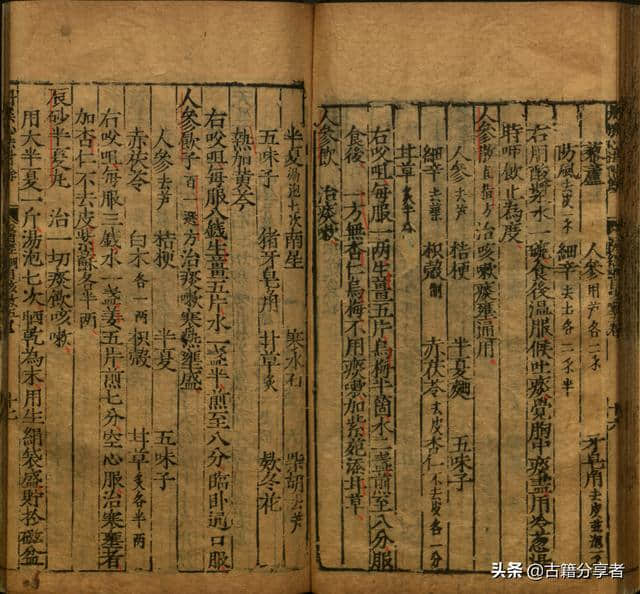 藜蘆 人參用芦各二 牙皂角去皮
防風去皮一 細辛去土各二 半
右用酸漿水一碗食後温服候吐痰覺胸中痰盡用冷葱湯
時呷飲止為度
人參飲直指方治咳嗽痰壅通用
人參去芦 桔梗 半夏麯 五味子
細辛去葉 枳殼制 赤茯苓去皮 杏仁不去皮各一分
甘草炙半
右㕮咀每服一两生薑五片烏梅半箇水二盞煎至八分服
食後 一方無杏仁烏梅不用痰嗽加紫菀添甘草
人參飲 治痰嗽
半夏湯泡七次 南星 寒水石 柴胡去芦
五味子 猪牙皂角 甘草炙 欵冬花
熱加黄芩
右㕮咀每服八錢生薑五片水一盞半煎至八分臨卧通口服
人參散子百一選方治痰嗽寒熱壅盛
人參去芦 桔梗 半夏 五味子
赤茯苓 白术各一两 枳殼 甘草炙各半两
右㕮咀每服三戔水一盞姜五片煎七分空心服治寒壅者
加杏仁不去皮紫蘇各半两
辰砂半夏丸 治一切痰飲咳嗽
用大半夏一斤湯泡七次晒乾為末用生絹袋盛貯於磁盆
头条 @古籍分享者